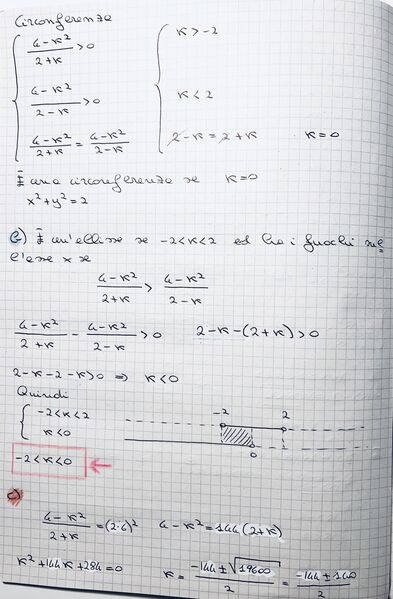 Circonferenza
(4-k²)/(2+k) > 0    k > -2
(4-k²)/(2-k) > 0    k < 2
(4-k²)/(2+k) = (4-k²)/(2-k)    2-k = 2+k    k=0
È una circonferenza se k=0
x²+y²=2
b) È un'ellisse se -2<k<2 ed ha i fuochi sul
l'asse x se
(4-k²)/(2+k) > (4-k²)/(2-k)
(4-k²)/(2+k) - (4-k²)/(2-k) > 0    2-k-(2+k)>0
2-k-2-k>0 ⇒ k<0
Quindi
-2<k<2    -2    2
k<0    0
-2<k<0 ←
c)
(4-k²)/(2+k) = (2·6)²    4-k²=144(2+k)
k²+144k+284=0    k = (-144±√19600)/2 = (-144±140)/2